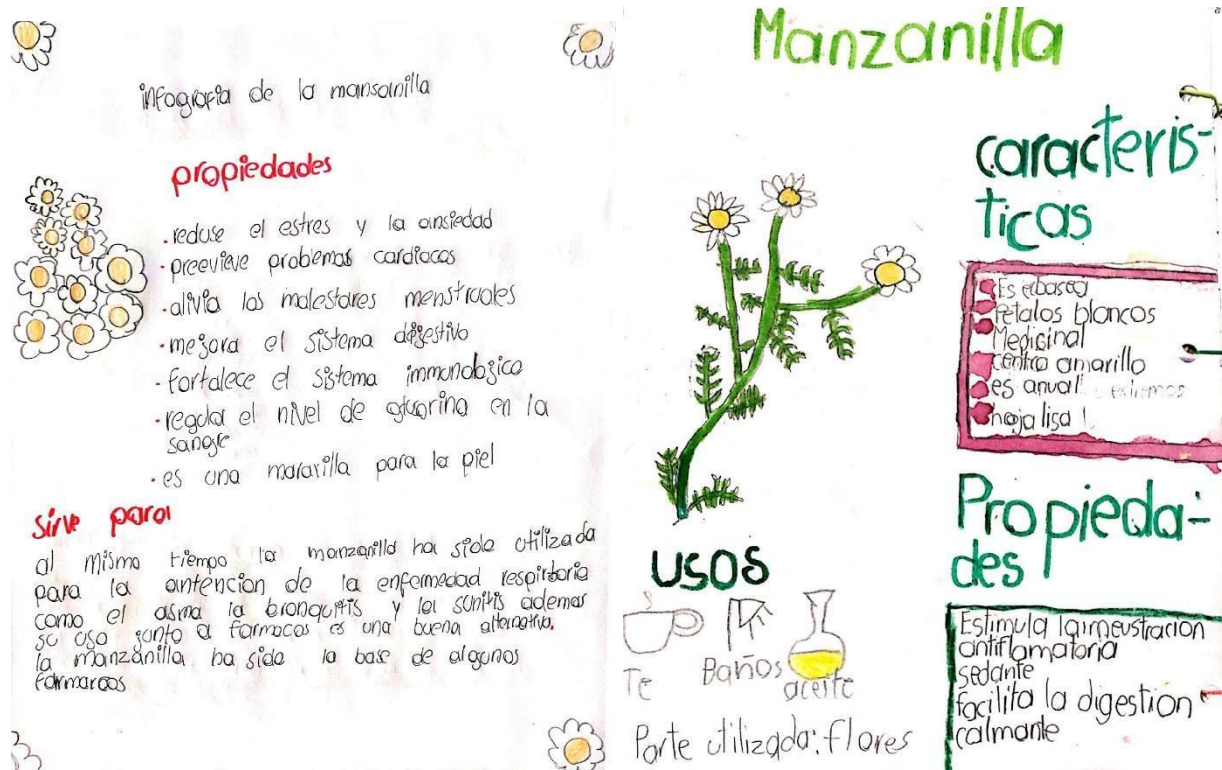 infografia de la mansanilla
propiedades
.reduse el estres y la ansiedad
.preevieve problemas cardiacos
.alivia los malestares menstruales
.mejora el sistema digestivo
.fortalece el sistema immunologico
.regula el nivel de en la
sangre
.es una maravilla para la piel
sirve para
al mismo tiempo la manzanilla ha sido utilizada
para la antencion de la enfermedad respirtoria
como el asma la bronquitis y la ademas
su uso junto a farmacos es una buena alternativa.
la manzanilla ha sido la base de algunos
farmarcos
Manzanilla
caracteris-
ticas
Es
Petalos blancos
Medicinal
centro amarillo
es anual
hoja lisa
Propieda-
des
Estimula
antiflamatoria
sedante
facilita la digestion
calmante
usos
Te
Baños
aceite
Parte utilizada: flores